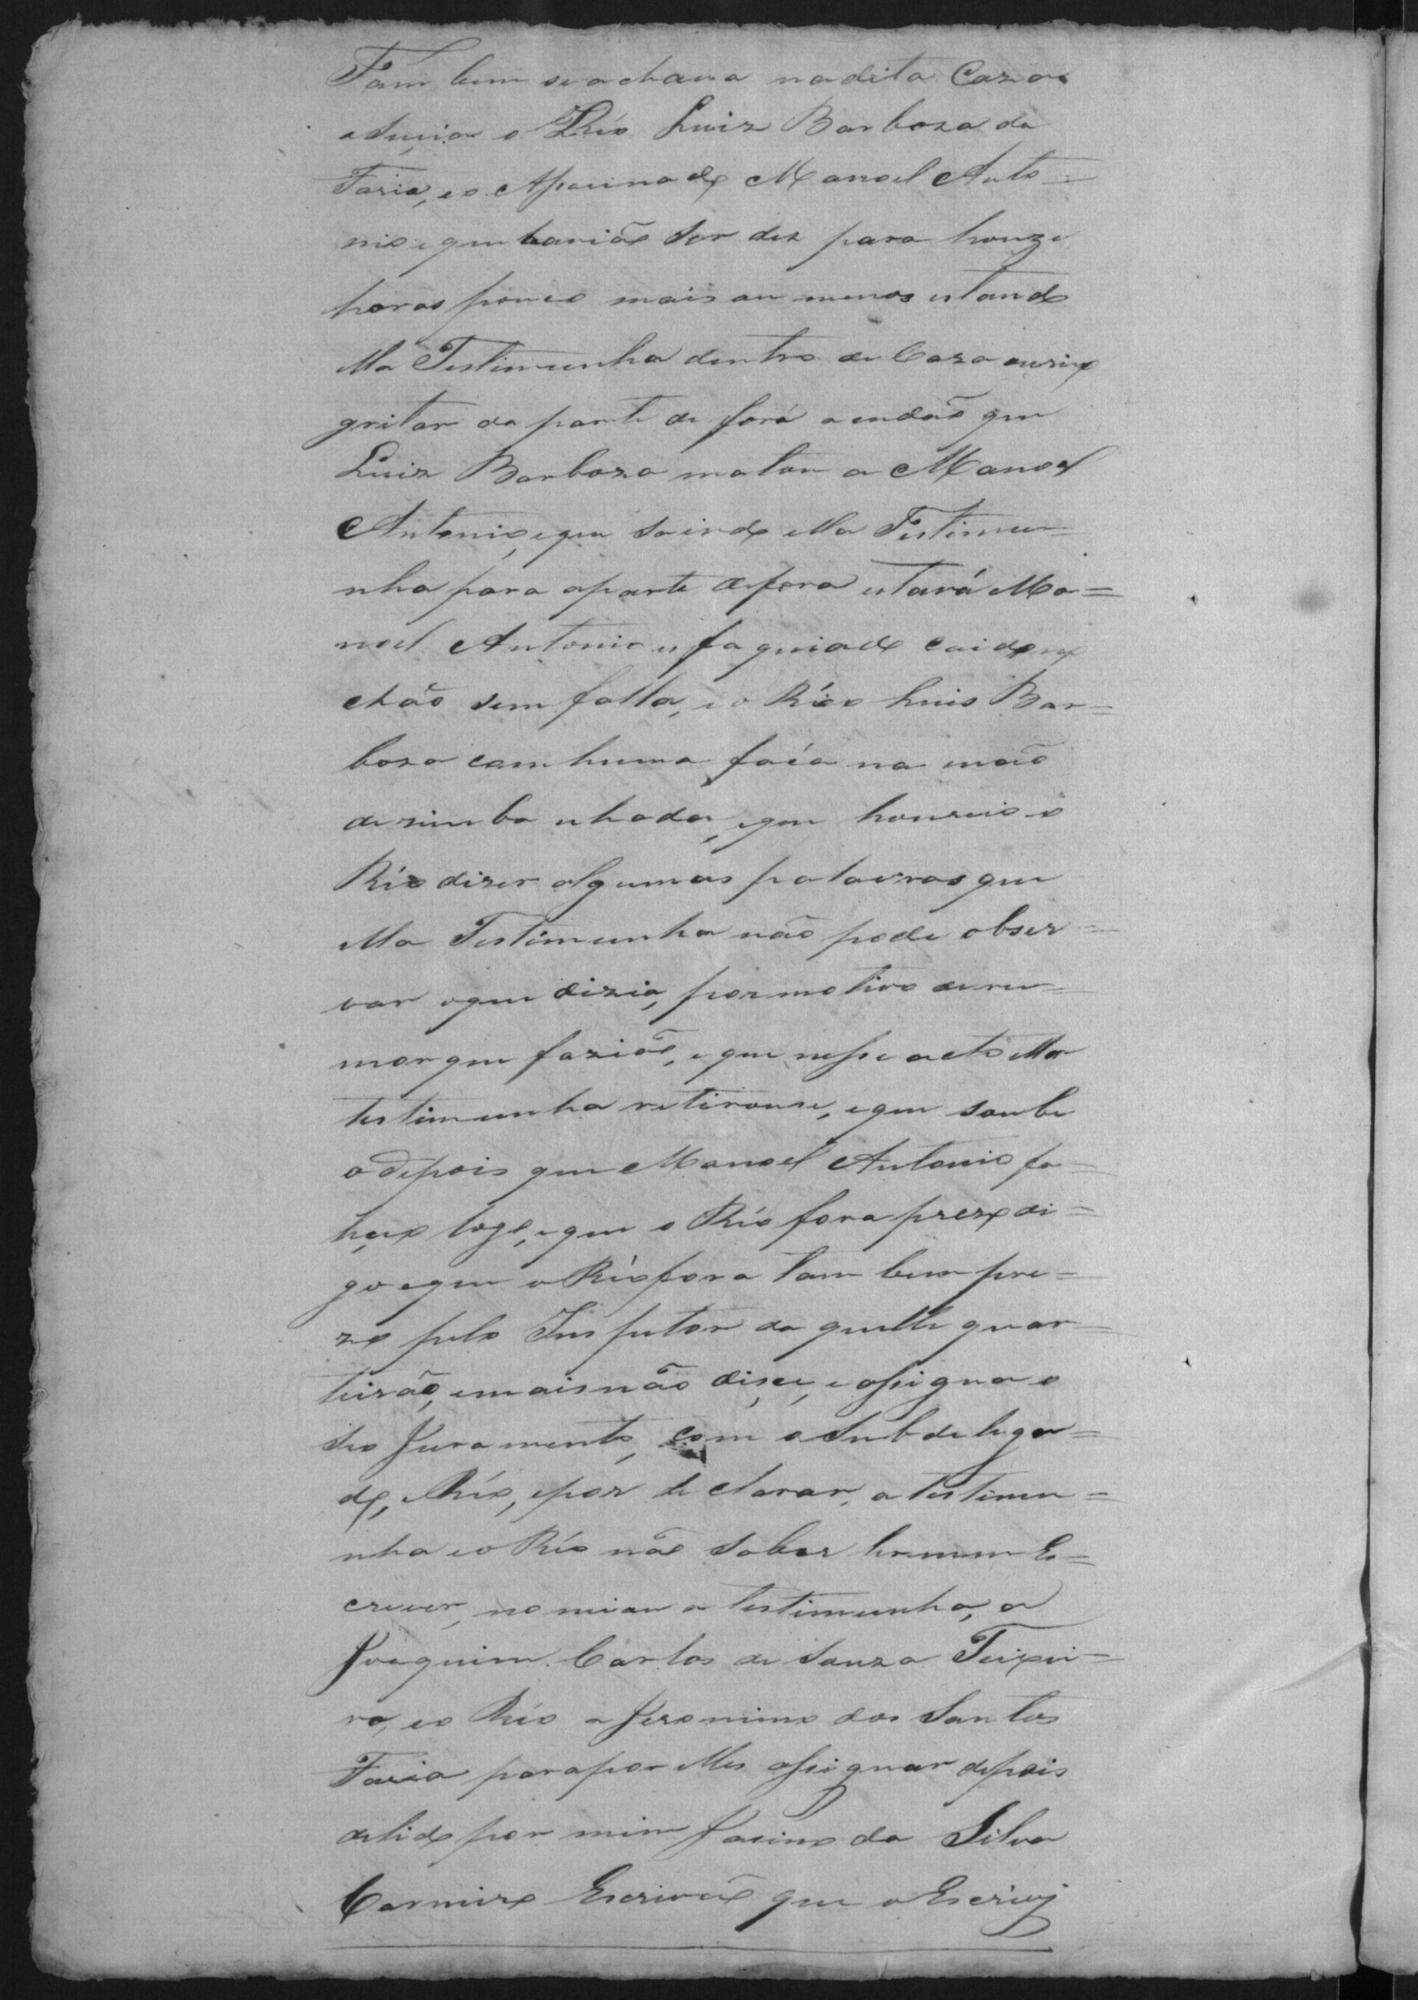 Tam bem se achava na dita Caza
a Sucia o Réo Luiz Barboza da
Faria, e o Apacinado Manoel Anto=
nio e que havião ser dez para honze
horas pouco mais au menos estando
ella Testimunha dentro de Caza ouvio
gritar da parte de fora acudão que
Luiz Barboza matou a Manoel
Antonio, e que saindo ella Testimu=
nha para aparte de fora estavá Ma=
noel Antonio esfaquiado caido no
chão sem falla, e o Réo Luis Bar=
boza com huma fáca na mão
dezimba nhada, e que houvio o
Réo dizer algumas palavras que
ella Testimunha não pode obser=
var oque dizia, por motivo de ru=
mor que fazião, e que nesse acto ella
testimunha retirouse, e que soube
a depois que Manoel Antonio fa=
lição logo, e que o Réo fora prezo di=
go e que o Réo fora tam bem pre=
zo pelo Inspetor da quelle quar=
teirão, e mais não diçe, e assigna o
seo Juramento, com o Subdelega=
do, e Réo, e por de clarar, a testimu=
nha e o Réo não saber lerem Es=
crever, no miau a testimunha, a
Joaquim Carlos de Souza Teixei=
ra, e o Réo a Jeronimo dos Santos
Faria para por elles assignar depois
de lido por mim Jacino da Silva
Carneiro Escrivão que o Escrivi